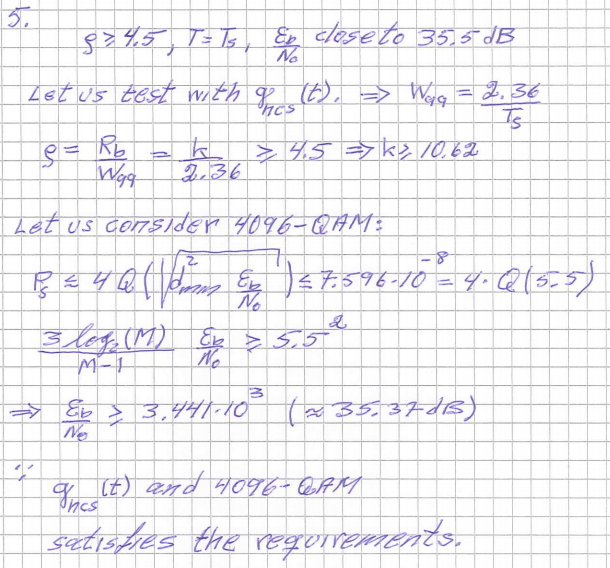 5.
ρ ≥ 4.5, T = Ts, Eb/N0 close to 35.5 dB
Let us test with ghcs(t). ⇒ W99 = 2.36/Ts
ρ = Rb/W99 = k/2.36 ≥ 4.5 ⇒ k ≥ 10.62
Let us consider 4096-QAM:
Ps ≤ 4 Q(√(d²min Eb/N0)) ≤ 7.596·10⁻⁸ = 4·Q(5.5)
3 log₂(M)/(M-1) Eb/N0 ≥ 5.5²
⇒ Eb/N0 ≥ 3.441·10³ (≈ 35.37 dB)
∵ ghcs(t) and 4096-QAM
satisfies the requirements.